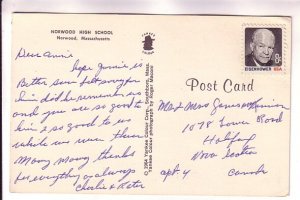 NORWOOD HIGH SCHOOL
Norwood, Massachusetts
Dear Annie
hope Jimmie is
Better
him did he remember us
and you are so good to
him & so good to us
while we were there
Many Many thanks
for everything as always
Charlie & Peter
© 1964 Yankee Colour Corp., Southboro, Mass.
Yankee Colour photograph by Roger Mason
8c
EISENHOWER USA
Post Card
Mr & Mrs James
1078 Tower Road
Halifax
Nova Scotia
apt 4 Canada